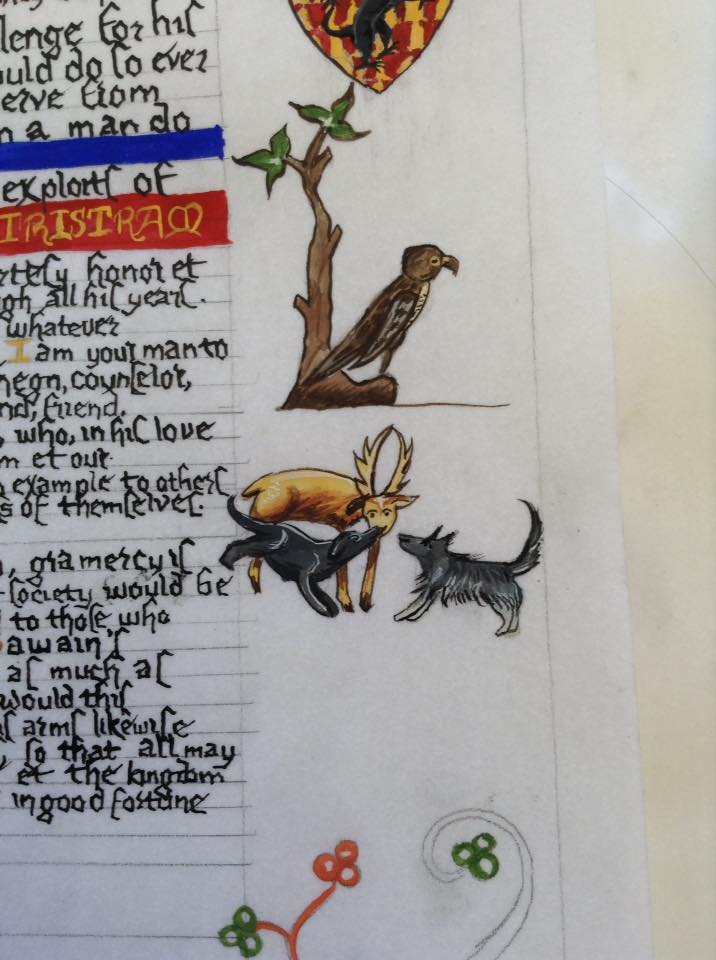 lenge for hiſ
uld do ſo ever
erve from
n a man do
exploitſ of
TRISTRAM
rteſy honor et
ugh all hiſ yearſ.
whatever
I am your man to
mpegn, counſelor,
nd, friend.
, who, in hiſ love
m et our
example to otherſ
s of themſelveſ.
, gramercy iſ
ſociety would be
to thoſe who
awain'ſ
aſ much aſ
would thiſ
armſ likewiſe
, ſo that all may
et the kingdom
in good fortune